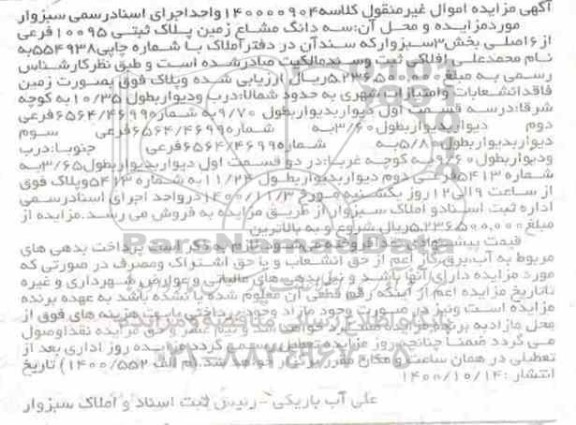 آگهی مزایده اموال غیرمنقول کلاسه۱۴۰۰۰۰۹۰۴واحداجرای اسنادرسمی سبزوار
موردمزایده و محل آن:سه دانگ مشاع زمین پلاک ثبتی ۱۰۰۹۵فرعی
از۶اصلی بخش۳سبزوارکه سندآن در دفتراملاک با شماره چاپی۵۵۴۹۳۸به
نام محمدعلی افلاکی ثبت وسندمالکیت صادرشده است و طبق نظرکارشناس
رسمی به مبلغ ریال ارزیابی شده وپلاک فوق بصورت زمین
فاقدانشعابات وامتیازات شهری به حدود شمالا:درب ودیواربطول ۱۰/۳۵به کوچه
شرقا:درسه قسمت اول دیواربدیواربطول ۹/۷۰ به شماره۶۵۶۴/۴۶۹۹فرعی
دوم دیواربدیواربطول۳/۶۰به شماره۶۵۶۴/۴۶۹۹فرعی سوم
دیواربدیواربطول۵/۸۰به شماره۶۵۶۴/۴۶۹۹فرعی جنوبا:درب
ودیواربطول به کوچه غربا:در دو قسمت اول دیواربدیواربطول۳/۶۵به
شماره۵۴۱۳فرعی دوم دیواربدیواربطول ۱۱/۲۴به شماره ۵۴۱۳وپلاک فوق
از ساعت ۹الی۱۲روز یکشنبه مورخ ۱۴۰۰/۱۱/۳درواحد اجرای اسنادرسمی
اداره ثبت اسنادو املاک سبزوار از طریق مزایده به فروش می رسد.مزایده از
مبلغ ۵،۲۳۶،۵۰۰،۰۰۰ریال شروع و به بالاترین
قیمت پیشنهادی نقدا فروخته می شود.لازم به ذکر است پرداخت بدهی های
مربوط به آب،برق،گاز اعم از حق انشعاب ویا حق اشتراک ومصرف در صورتی که
مورد مزایده دارای آنها باشد و نیز بدهی های مالیاتی وعوارض شهرداری و غیره
تاتاریخ مزایده اعم از اینکه رقم قطعی آن معلوم شده یا نشده باشد به عهده برنده
مزایده است ونیز در صورت وجود مازاد وجوه پرداختی بابت هزینه های فوق از
محل مازادبه برنده مزایده مسترد خواهد شد و نیم عشر و حق مزایده نقداوصول
می گردد ضمنا چنانچه روز مزایده تعطیل رسمی گردد،مزایده روز اداری بعد از
تعطیلی در همان ساعت ومکان مقرر برگزار خواهد شد.(م الف ۱۴۰۰/۵۵۲) تاریخ
انتشار :۱۴۰۰/۱۰/۱۴
علی آب باریکی -رئیس ثبت اسناد و املاک سبزوار